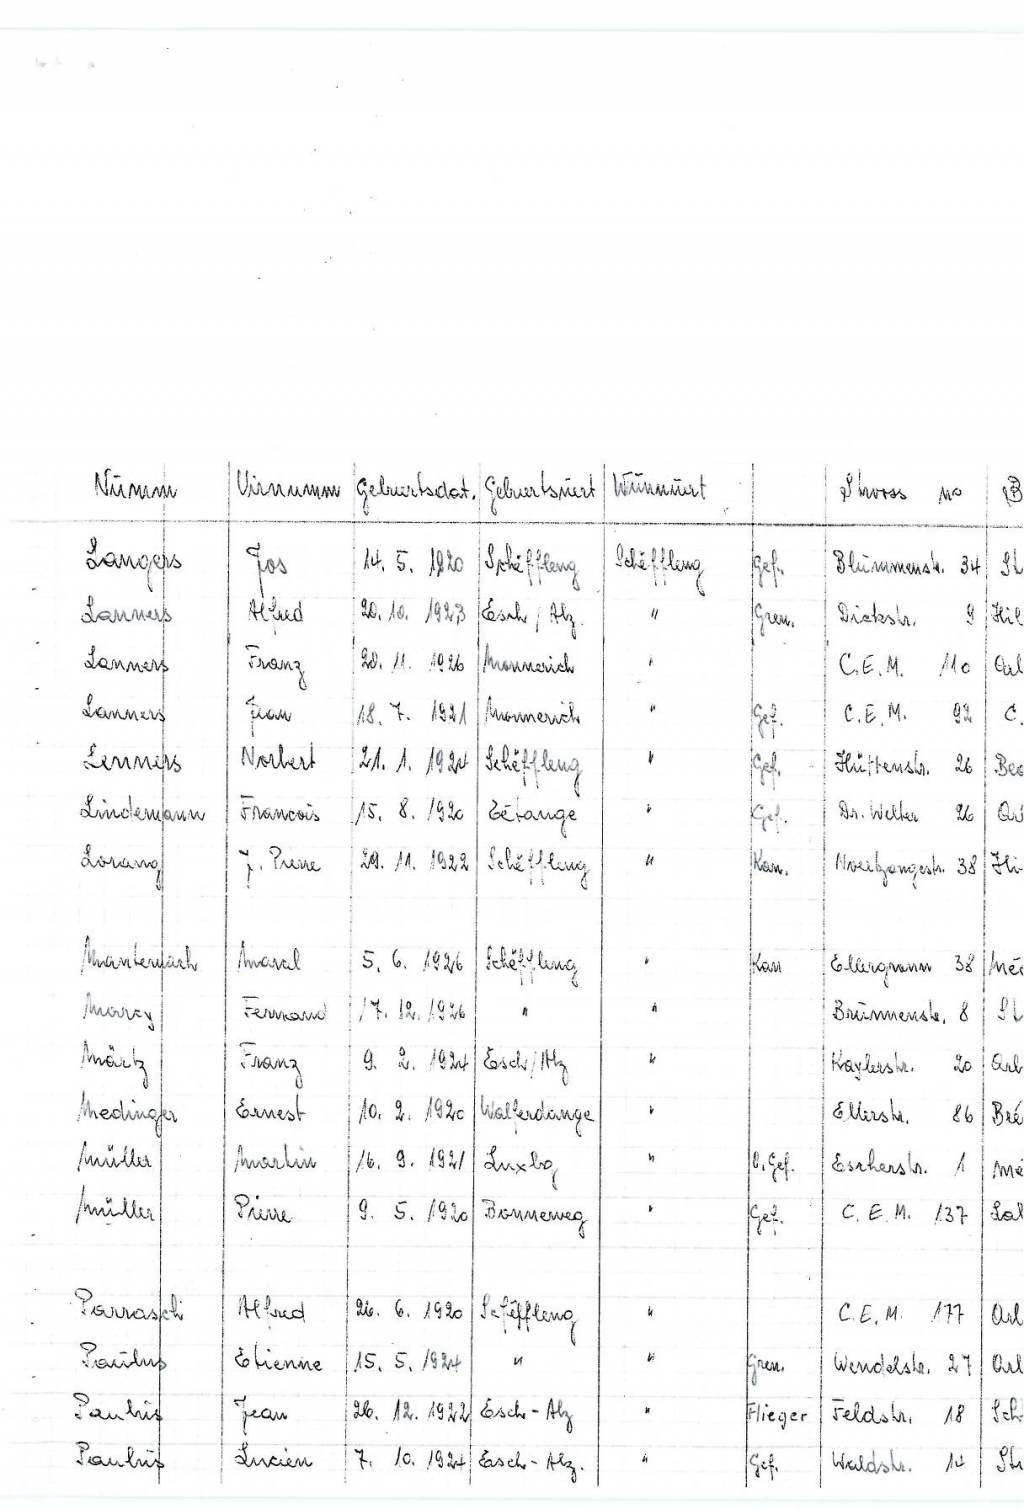 Numm Virnumm Geburtsdat. Geburtsuert Wunnuert Stross no B
Langers Jos 14. 5. 1920 Schëffleng Schëffleng Gef. Blummenstr. 34 St
Lanners Alfred 20. 10. 1923 Esch/Alz. " Gren. Dickstr. 9 Hil
Lanners Franz 28. 11. 1926 Monnerich " C.E.M. 110 Arb
Lanners Jean 18. 7. 1921 Monnerich " Gef. C.E.M. 92 C.
Lenners Norbert 21. 1. 1924 Schëffleng " Gef. Hüttenstr. 26 Bea
Lindemann Francois 15. 8. 1920 Tétange " Gef. Dr. Welter 26
Lorang J. Pierre 29. 11. 1922 Schëffleng " Kan. Noertzangestr. 38
Manternach Marcel 5. 6. 1926 Schëffleng " Kan Ellergronn 38 Mé
Marcy Fernand 17. 12. 1926 " " Brunnenstr. 8 St
Märtz Franz 9. 2. 1924 Esch/Alz " Kaylerstr. 20 Arb
Medinger Ernest 10. 2. 1920 Walferdange " Ellerstr. 86
Müller Martin 16. 9. 1921 Luxbg " O.Gef. Escherstr. 1 Mé
Müller Pierre 9. 5. 1920 Bonneweg " Gef. C.E.M. 137
Parrasch Alfred 26. 6. 1920 Schëffleng " C.E.M. 177 Arb
Paulus Etienne 15. 5. 1924 " " Gren. Wendelstr. 27 Arb
Paulus Jean 26. 12. 1922 Esch-Alz " Flieger Feldstr. 18 Sch
Paulus Lucien 7. 10. 1924 Esch-Alz. " Gef. Waldstr. 14 St